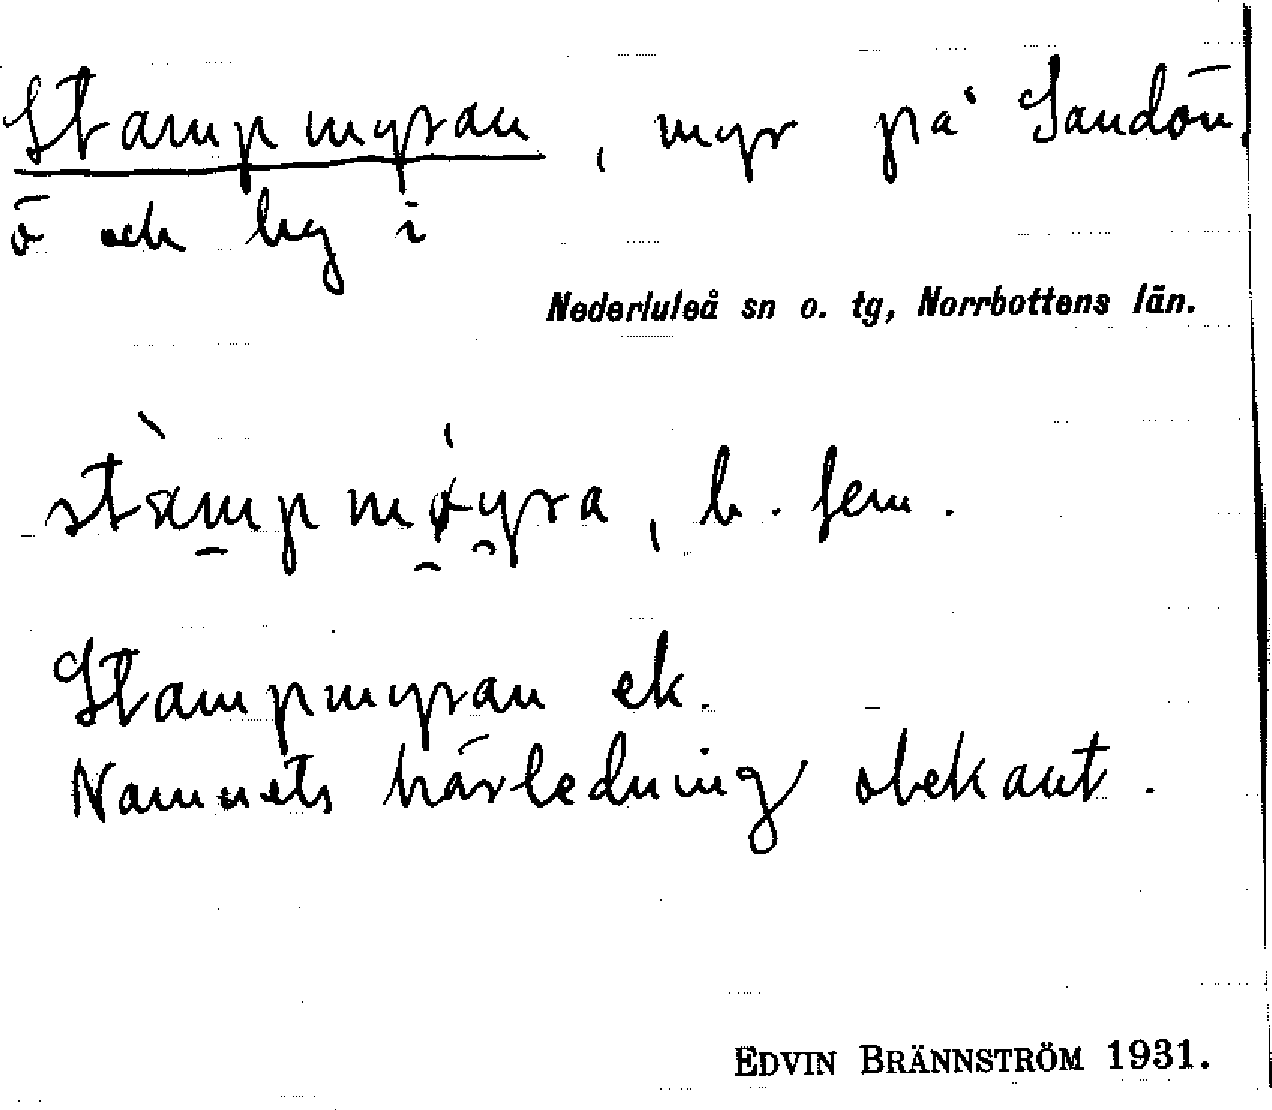 Stampmyran, myr på Sandön,
ö och by i
Nederluleå sn o. tg, Norrbottens län.
stampmøyra, b. fem.
Stampmyran ek.
Namnets härledning obekant.
EDVIN BRÄNNSTRÖM 1931.